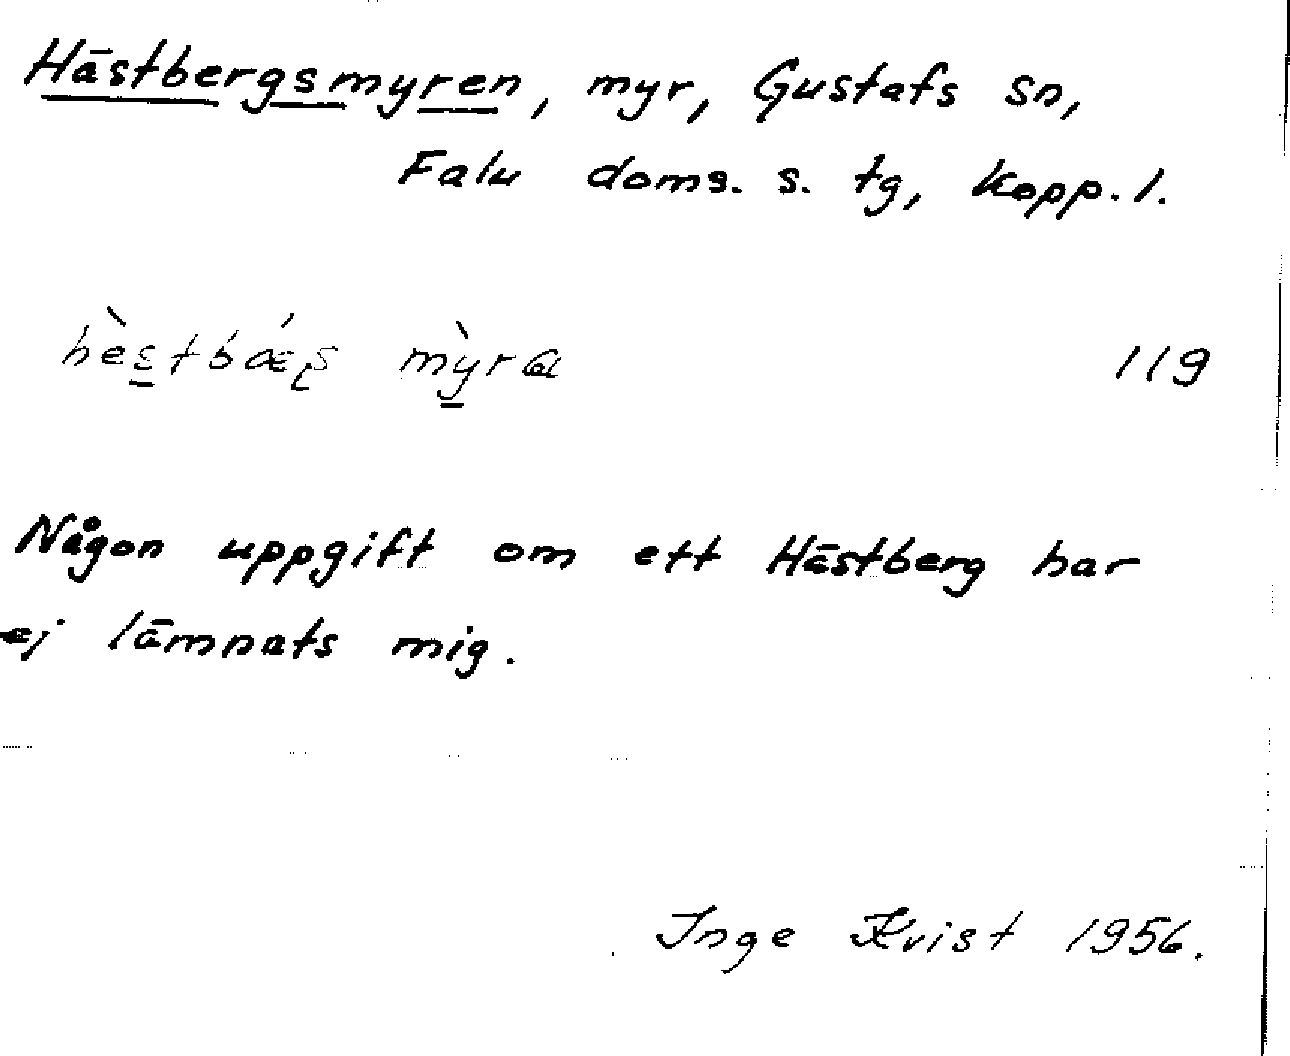 Hästbergsmyren, myr, Gustafs sn,
Falu doms. s. tg, Kopp. l.
119
Någon uppgift om ett Hästberg har
ej lämnats mig.
Inge Kvist 1956.